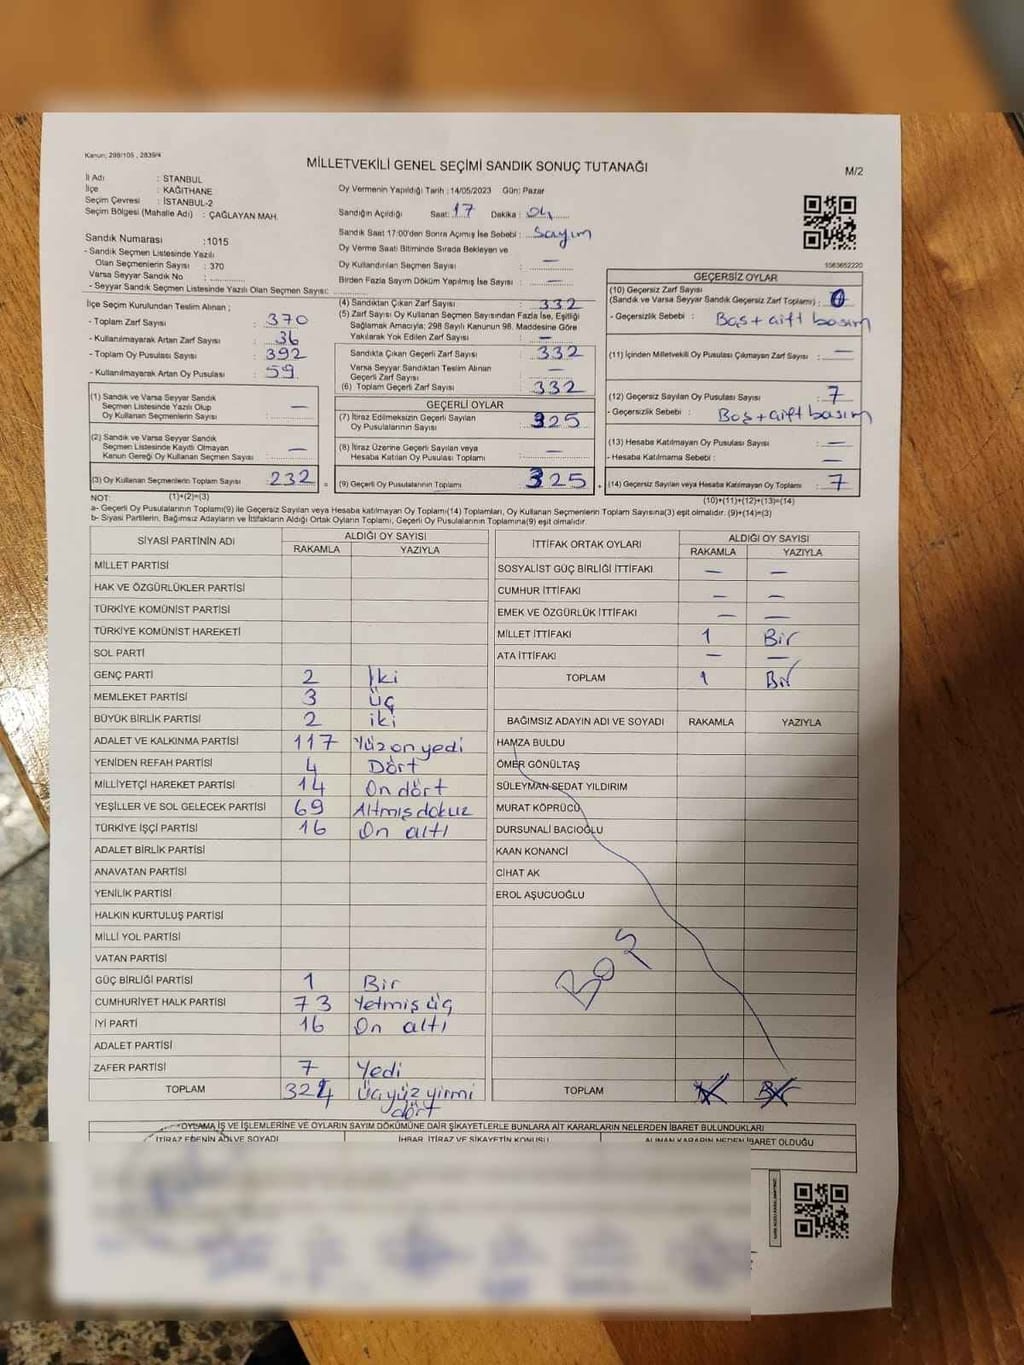 Kanun: 298/105 , 2839/4
MİLLETVEKİLİ GENEL SEÇİMİ SANDIK SONUÇ TUTANAĞI
M/2
İl Adı : STANBUL
İlçe : KAĞITHANE
Seçim Çevresi : İSTANBUL-2
Seçim Bölgesi (Mahalle Adı) : ÇAĞLAYAN MAH.
Sandık Numarası :1015
- Sandık Seçmen Listesinde Yazılı
Olan Seçmenlerin Sayısı : 370
Varsa Seyyar Sandık No :
- Seyyar Sandık Seçmen Listesinde Yazılı Olan Seçmen Sayısı:
İlçe Seçim Kurulundan Teslim Alınan ;
- Toplam Zarf Sayısı : 370
- Kullanılmayarak Artan Zarf Sayısı : 36
- Toplam Oy Pusulası Sayısı : 392
- Kullanılmayarak Artan Oy Pusulası : 59
(1) Sandık ve Varsa Seyyar Sandık
Seçmen Listesinde Yazılı Olup
Oy Kullanan Seçmenlerin Sayısı : —
(2) Sandık ve Varsa Seyyar Sandık
Seçmen Listesinde Kayıtlı Olmayan
Kanun Gereği Oy Kullanan Seçmen Sayısı : —
(3) Oy Kullanan Seçmenlerin Toplam Sayısı : 232 =
Oy Vermenin Yapıldığı Tarih :14/05/2023 Gün: Pazar
Sandığın Açıldığı Saat: 17 Dakika : 04
Sandık Saat 17:00'den Sonra Açımış İse Sebebi : Sayım
Oy Verme Saati Bitiminde Sırada Bekleyen ve
Oy Kullandırılan Seçmen Sayısı : —
Birden Fazla Sayım Döküm Yapılmış İse Sayısı : —
(4) Sandıktan Çıkan Zarf Sayısı : 332
(5) Zarf Sayısı Oy Kullanan Seçmen Sayısından Fazla İse, Eşitliği
Sağlamak Amacıyla; 298 Sayılı Kanunun 98. Maddesine Göre
Yakılarak Yok Edilen Zarf Sayısı : —
Sandıkta Çıkan Geçerli Zarf Sayısı : 332
Varsa Seyyar Sandıktan Teslim Alınan
Geçerli Zarf Sayısı : —
(6) Toplam Geçerli Zarf Sayısı : 332
GEÇERLİ OYLAR
(7) İtiraz Edilmeksizin Geçerli Sayılan
Oy Pusulalarının Sayısı : 325
(8) İtiraz Üzerine Geçerli Sayılan veya
Hesaba Katılan Oy Pusulası Toplamı : —
(9) Geçerli Oy Pusulalarının Toplamı : 325 +
1563652220
GEÇERSİZ OYLAR
(10) Geçersiz Zarf Sayısı
(Sandık ve Varsa Seyyar Sandık Geçersiz Zarf Toplamı) : 0
- Geçersizlik Sebebi : Boş + çift basım
(11) İçinden Milletvekili Oy Pusulası Çıkmayan Zarf Sayısı : —
(12) Geçersiz Sayılan Oy Pusulası Sayısı : 7
- Geçersizlik Sebebi : Boş + çift basım
(13) Hesaba Katılmayan Oy Pusulası Sayısı : —
- Hesaba Katılmama Sebebi : —
(14) Geçersiz Sayılan veya Hesaba Katılmayan Oy Toplamı : 7
NOT: (1)+(2)=(3) (10)+(11)+(12)+(13)=(14)
a- Geçerli Oy Pusulalarının Toplamı(9) ile Geçersiz Sayılan veya Hesaba Katılmayan Oy Toplamı(14) Toplamları, Oy Kullanan Seçmenlerin Toplam Sayısına(3) eşit olmalıdır. (9)+(14)=(3)
b- Siyasi Partilerin, Bağımsız Adayların ve İttifakların Aldığı Ortak Oyların Toplamı, Geçerli Oy Pusulalarının Toplamına(9) eşit olmalıdır.
SİYASİ PARTİNİN ADI ALDIĞI OY SAYISI
RAKAMLA YAZIYLA
MİLLET PARTİSİ
HAK VE ÖZGÜRLÜKLER PARTİSİ
TÜRKİYE KOMÜNİST PARTİSİ
TÜRKİYE KOMÜNİST HAREKETİ
SOL PARTİ
GENÇ PARTİ 2 İki
MEMLEKET PARTİSİ 3 üç
BÜYÜK BİRLİK PARTİSİ 2 iki
ADALET VE KALKINMA PARTİSİ 117 Yüz on yedi
YENİDEN REFAH PARTİSİ 4 Dört
MİLLİYETÇİ HAREKET PARTİSİ 14 On dört
YEŞİLLER VE SOL GELECEK PARTİSİ 69 Altmış dokuz
TÜRKİYE İŞÇİ PARTİSİ 16 On altı
ADALET BİRLİK PARTİSİ
ANAVATAN PARTİSİ
YENİLİK PARTİSİ
HALKIN KURTULUŞ PARTİSİ
MİLLİ YOL PARTİSİ
VATAN PARTİSİ
GÜÇ BİRLİĞİ PARTİSİ 1 Bir
CUMHURİYET HALK PARTİSİ 73 Yetmiş üç
İYİ PARTİ 16 On altı
ADALET PARTİSİ
ZAFER PARTİSİ 7 Yedi
TOPLAM 324 Üçyüz yirmi
dört
İTTİFAK ORTAK OYLARI ALDIĞI OY SAYISI
RAKAMLA YAZIYLA
SOSYALİST GÜÇ BİRLİĞİ İTTİFAKI — —
CUMHUR İTTİFAKI — —
EMEK VE ÖZGÜRLÜK İTTİFAKI — —
MİLLET İTTİFAKI 1 Bir
ATA İTTİFAKI — —
TOPLAM 1 Bir
BAĞIMSIZ ADAYIN ADI VE SOYADI RAKAMLA YAZIYLA
HAMZA BULDU
ÖMER GÖNÜLTAŞ
SÜLEYMAN SEDAT YILDIRIM
MURAT KÖPRÜCÜ
DURSUNALİ BACIOĞLU
KAAN KONANCİ
CİHAT AK
EROL AŞUCUOĞLU
BOŞ
TOPLAM
OYLAMA İŞ VE İŞLEMLERİNE VE OYLARIN SAYIM DÖKÜMÜNE DAİR ŞİKAYETLERLE BUNLARA AİT KARARLARIN NELERDEN İBARET BULUNDUKLARI
İTİRAZ EDENİN ADI VE SOYADI İHBAR, İTİRAZ VE ŞİKAYETİN KONUSU ALINAN KARARIN NEDEN İBARET OLDUĞU